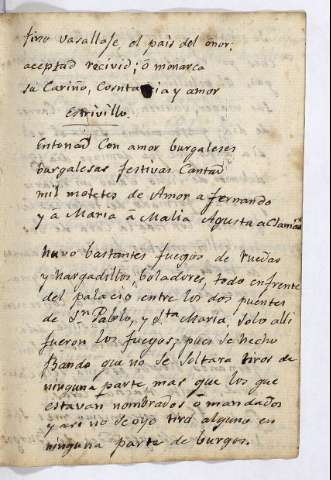 tivo vasallaje, el pais del onor;
aceptad recivid; ô monarca
su Cariño, Constancia y amor
estrivillo.
Entonad Con amor burgaleses
burgalesas festivas Cantad
mil motetes de Amor a fernando
y a Maria â Malia Agusta aclamad
huvo bastantes fuegos de ruedas
y Nargadillos, boladores, todo enfrente
del palacio entre los dos puentes
de Sn Pablo, y Sta Maria, solo alli
fueron los fuegos; pues se hecho
Bando que no se soltara tiros de
ninguna parte, mas que los que
estavan nombrados ô mandados
y asi no se oyo tiro alguno en
ninguna parte de burgos.